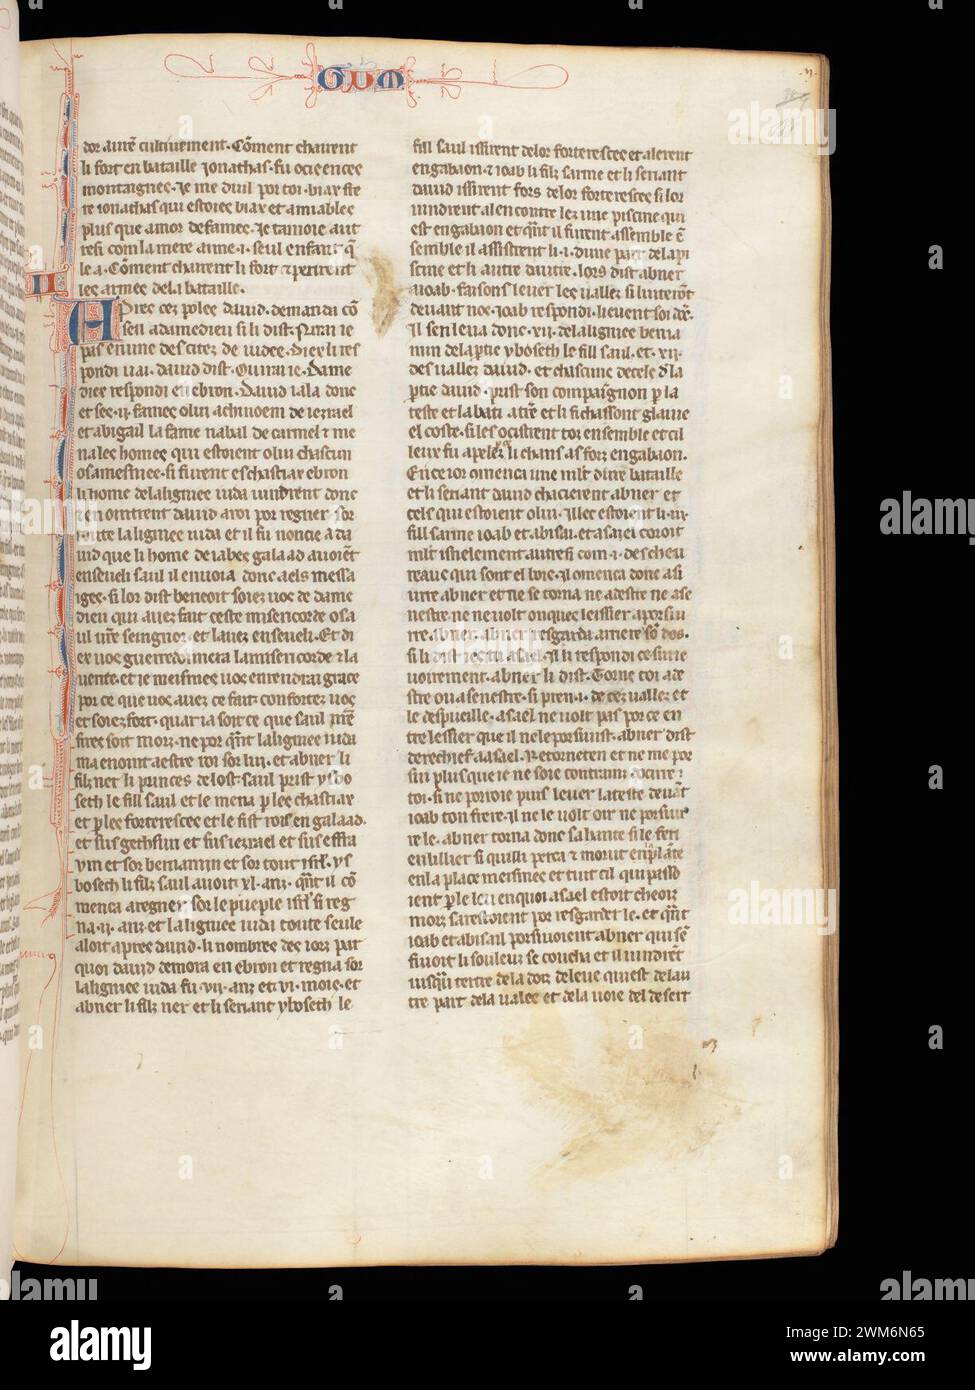 GUM
dor aure cultiuement. Coment chairent
li fort en bataille Jonathas. fu ocis en ces
montaignes. Je me duil por toi. biax fre
re ionathas qui estoies biax et amiables
plus que amor de fames. Je tamoie aut
resi com la mere aime .i. seul enfant q
le a. Coment chairent li fort et perirent
les armes de la bataille.
II
Apres ces poles dauid. demanda co
seil a damedieu si li dist. Nirai ie
pas en une des citez de iudee. Diex li res
pondi uai. dauid dist. Ou irai ie. Dame
diex respondi en ebron. Dauid i ala donc
et ses .ij. fames o lui achinoem de iezrael
et abigail la fame nabal de carmel et me
na les homes qui estoient o lui chascun
o sa mesnee. si furent es chastiax ebron
li home de la lignee iuda uindrent donc
et en ointrent dauid a roi por regner sor
toute la lignee iuda et il fu noncie a da
uid que li home de iabes galaad auoient
enseueli saul il enuoia donc a els messa
iges. si lor dist beneoit soiez uos de dame
dieu qui auez fait ceste misericorde o sa
ul ure seingnor et lauez enseueli. Et di
ex uos guerredonnera la misericorde et la
uerite. et ie meismes uos en rendrai grace
por ce que uos auez ce fait confortez uos
et soiez fort. quar ia soit ce que saul ure
sires soit morz. ne por qant la lignee iuda
ma enoint a estre roi sor lui. et abner li
filz ner li princes de lost saul prist ysbo
seth le fill saul et le mena p les chastiax
et p les forteresces et le fist rois en galaad.
et sus gethsuri et sus iezrael et sus effra
ym et sor beniamin et sor tout isrl. ys
boseth li filz saul auoit .xl. anz. qant il co
menca a regner sor le pueple isrl si reg
na .ij. anz et la lignee iuda toute seule
aloit apres dauid. li nombres des iorz par
quoi dauid demora en ebron et regna sor
la lignee iuda fu .vij. anz et .vi. mois. et
abner li filz ner et li seriant ysboseth le
fill saul issirent de lor forteresces et alerent
en gabaon et ioab li filz saruie et li seriant
dauid issirent fors de lor forteresces si lor
uindrent a lencontre lez une piscine qui
est en gabaon et qant il furent assemble e
semble il assistrent li .i. dune part de la pi
scine et li autre dautre. lors dist abner
a ioab. faisons leuer les uallez si luiteront
deuant nos. ioab respondi. lieuent soi donc.
Il sen leua donc .xij. de la lignee benia
min de la ptie ysboseth le fill saul. et .xij.
des uallez dauid. et chascuns de cels de la
ptie dauid. prist son compaignon p la
teste et labati a tre et li fichassont glaiue
el coste. si les ocistrent toz ensemble et cil
leux fu apelez li chans as forz en gabaon.
En ce ior comenca une mlt dure bataille
et li seriant dauid chacierent abner et
cels qui estoient o lui. Illec estoient li .iij.
fill saruie ioab et abisai. et asael coroit
mlt isnelement autresi com .i. des cheu
reaus qui sont el bois. Il comenca donc a si
urre abner et ne se torna ne a destre ne a se
nestre ne ne uolt onques leissier a porsiu
rre abner. abner resgarda arriere son dos.
si li dist ies tu asael. Il li respondi ce sui ie
uoirement. abner li dist. Torne toi a de
stre ou a senestre. si pren .i. de cez uallez et
le despueille. asael ne uolt pas por ce en
tre lessier que il ne le porsiuist. abner dist
derechief a asael. Retorne ten et ne me por
siu plus que ie ne soie contrainz docirre
toi. si ne porroie puis leuer la teste deuant
ioab ton frere. il ne le uolt oir ne por siur
re le. abner torna donc sa hante si le feri
en billier si quilli perca et morut en plante
en la place meismes et tuit cil qui passo
ient p le leu en quoi asael estoit cheoiz
morz sarestoient por resgarder le. et qant
ioab et abisai porsiuoient abner qui sen
fuioit li souleuz se coucha et il uindrent
iusqua tertre de la doiz de leue qui est de lau
tre part de la ualee et de la uoie del desert
alamy
Image ID: 2WM6N65
www.alamy.com